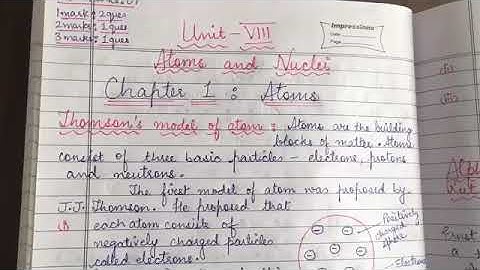 1mark: 2ques
2marks: 1ques
3marks: 1ques
Impressions
Date
Page
Unit-VIII
Atoms and Nuclei
Chapter 1 : Atoms
Thomson's model of atom : Atoms are the building
blocks of matter. Atoms
consist of three basic particles - electrons, protons
and neutrons.
The first model of atom was proposed by
J.J. Thomson. He proposed that
each atom consists of
negatively charged particles
called electrons.
Positively
charged
sphere